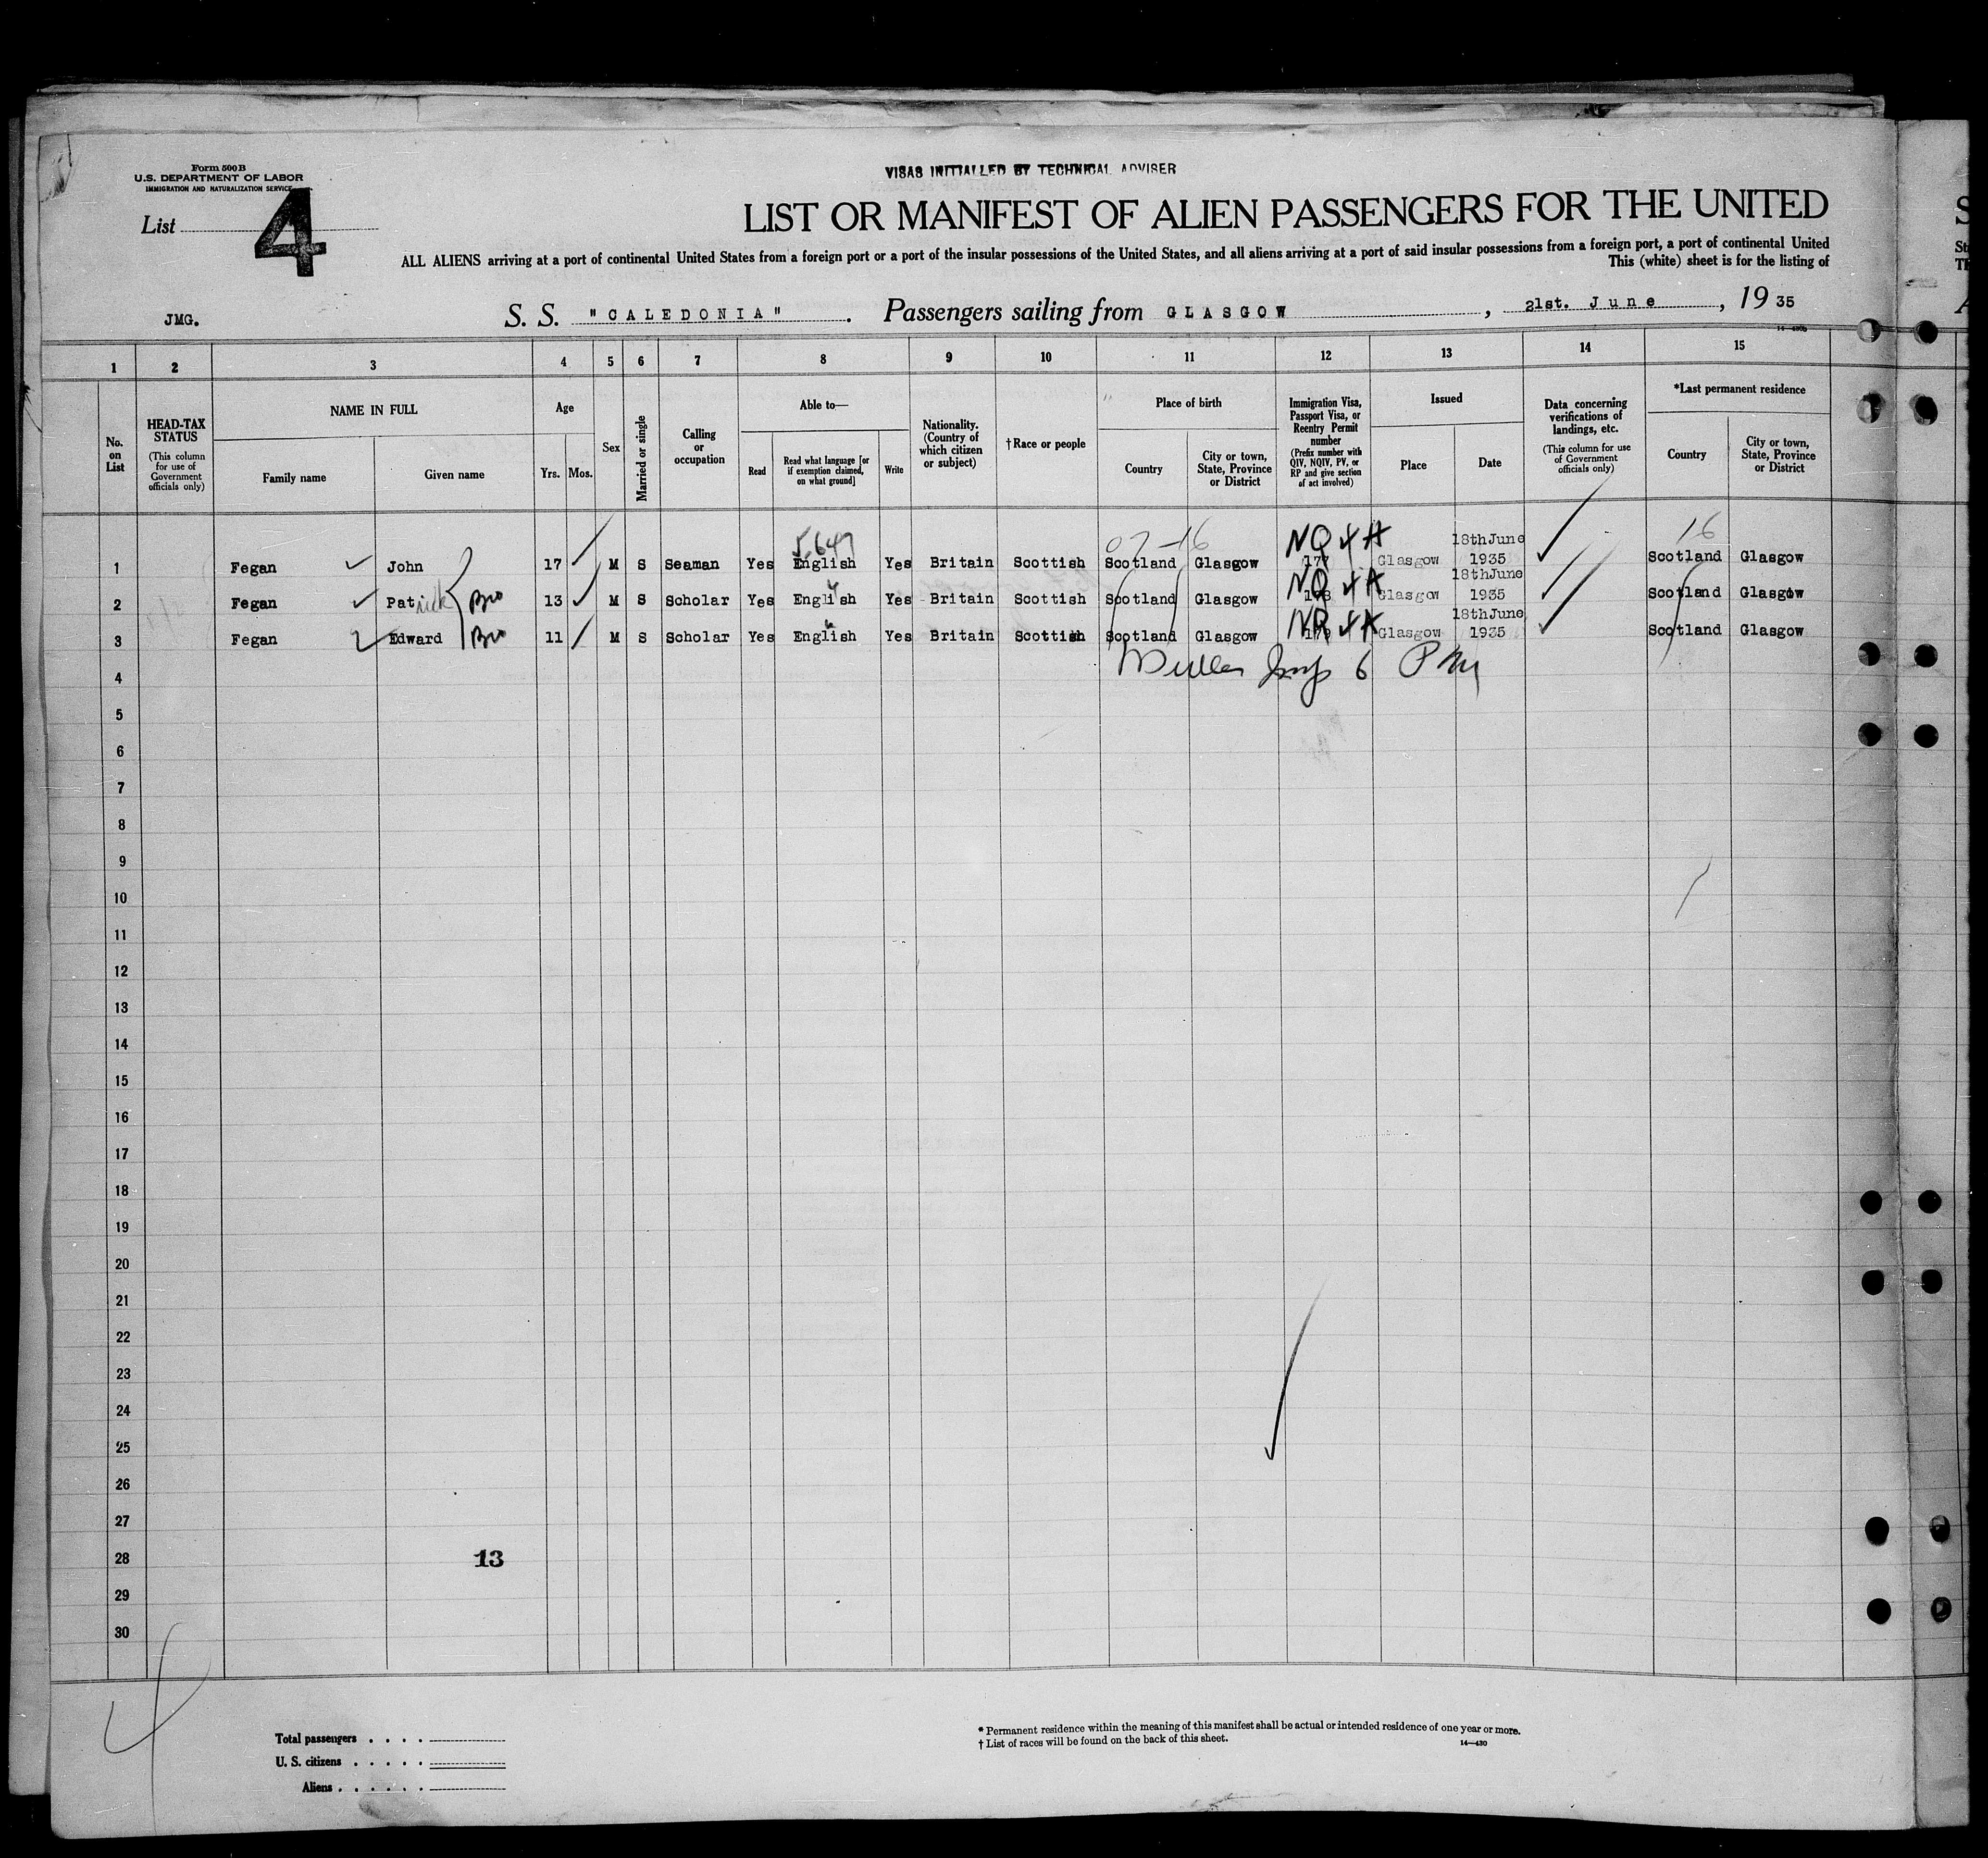 Form 500 B
U.S. DEPARTMENT OF LABOR
IMMIGRATION AND NATURALIZATION SERVICE
VISAS INITIALLED BY TECHNICAL ADVISER
List 4
LIST OR MANIFEST OF ALIEN PASSENGERS FOR THE UNITED
ALL ALIENS arriving at a port of continental United States from a foreign port or a port of the insular possessions of the United States, and all aliens arriving at a port of said insular possessions from a foreign port, a port of continental United
This (white) sheet is for the listing of
JMG. S. S. "CALEDONIA". Passengers sailing from GLASGOW, 21st. June, 1935
1 2 3 4 5 6 7 8 9 10 11 12 13 14 15
No. on List
HEAD-TAX STATUS
(This column for use of Government officials only)
NAME IN FULL
Family name
Given name
Age
Yrs. Mos.
Sex
Married or single
Calling or occupation
Able to—
Read
Read what language [or if exemption claimed, on what ground]
Write
Nationality. (Country of which citizen or subject)
†Race or people
Place of birth
Country
City or town, State, Province or District
Immigration Visa, Passport Visa, or Reentry Permit number
(Prefix number with QIV, NQIV, PV, or RP and give section of act involved)
Issued
Place
Date
Data concerning verifications of landings, etc.
(This column for use of Government officials only)
*Last permanent residence
Country
City or town, State, Province or District
07-16 16
1 Fegan John 17 M S Seaman Yes English Yes Britain Scottish Scotland Glasgow NQ 4A 177 Glasgow 18thJune 1935 Scotland Glasgow
2 Fegan Patrick Bro 13 M S Scholar Yes English Yes Britain Scottish Scotland Glasgow NQ 4A 178 Glasgow 18thJune 1935 Scotland Glasgow
3 Fegan Edward Bro 11 M S Scholar Yes English Yes Britain Scottish Scotland Glasgow NQ 4A 179 Glasgow 18thJune 1935 Scotland Glasgow
4
5
6
7
8
9
10
11
12
13
14
15
16
17
18
19
20
21
22
23
24
25
26
27
28 13
29
30
Total passengers . . . .
U. S. citizens . . . . .
Aliens . . . . . .
* Permanent residence within the meaning of this manifest shall be actual or intended residence of one year or more.
† List of races will be found on the back of this sheet.
14—430